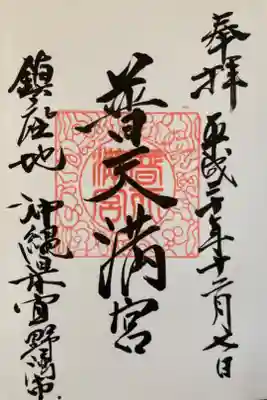 奉拝
平成二十年十二月七日
普天満宮
鎮座地 沖縄県宜野湾市